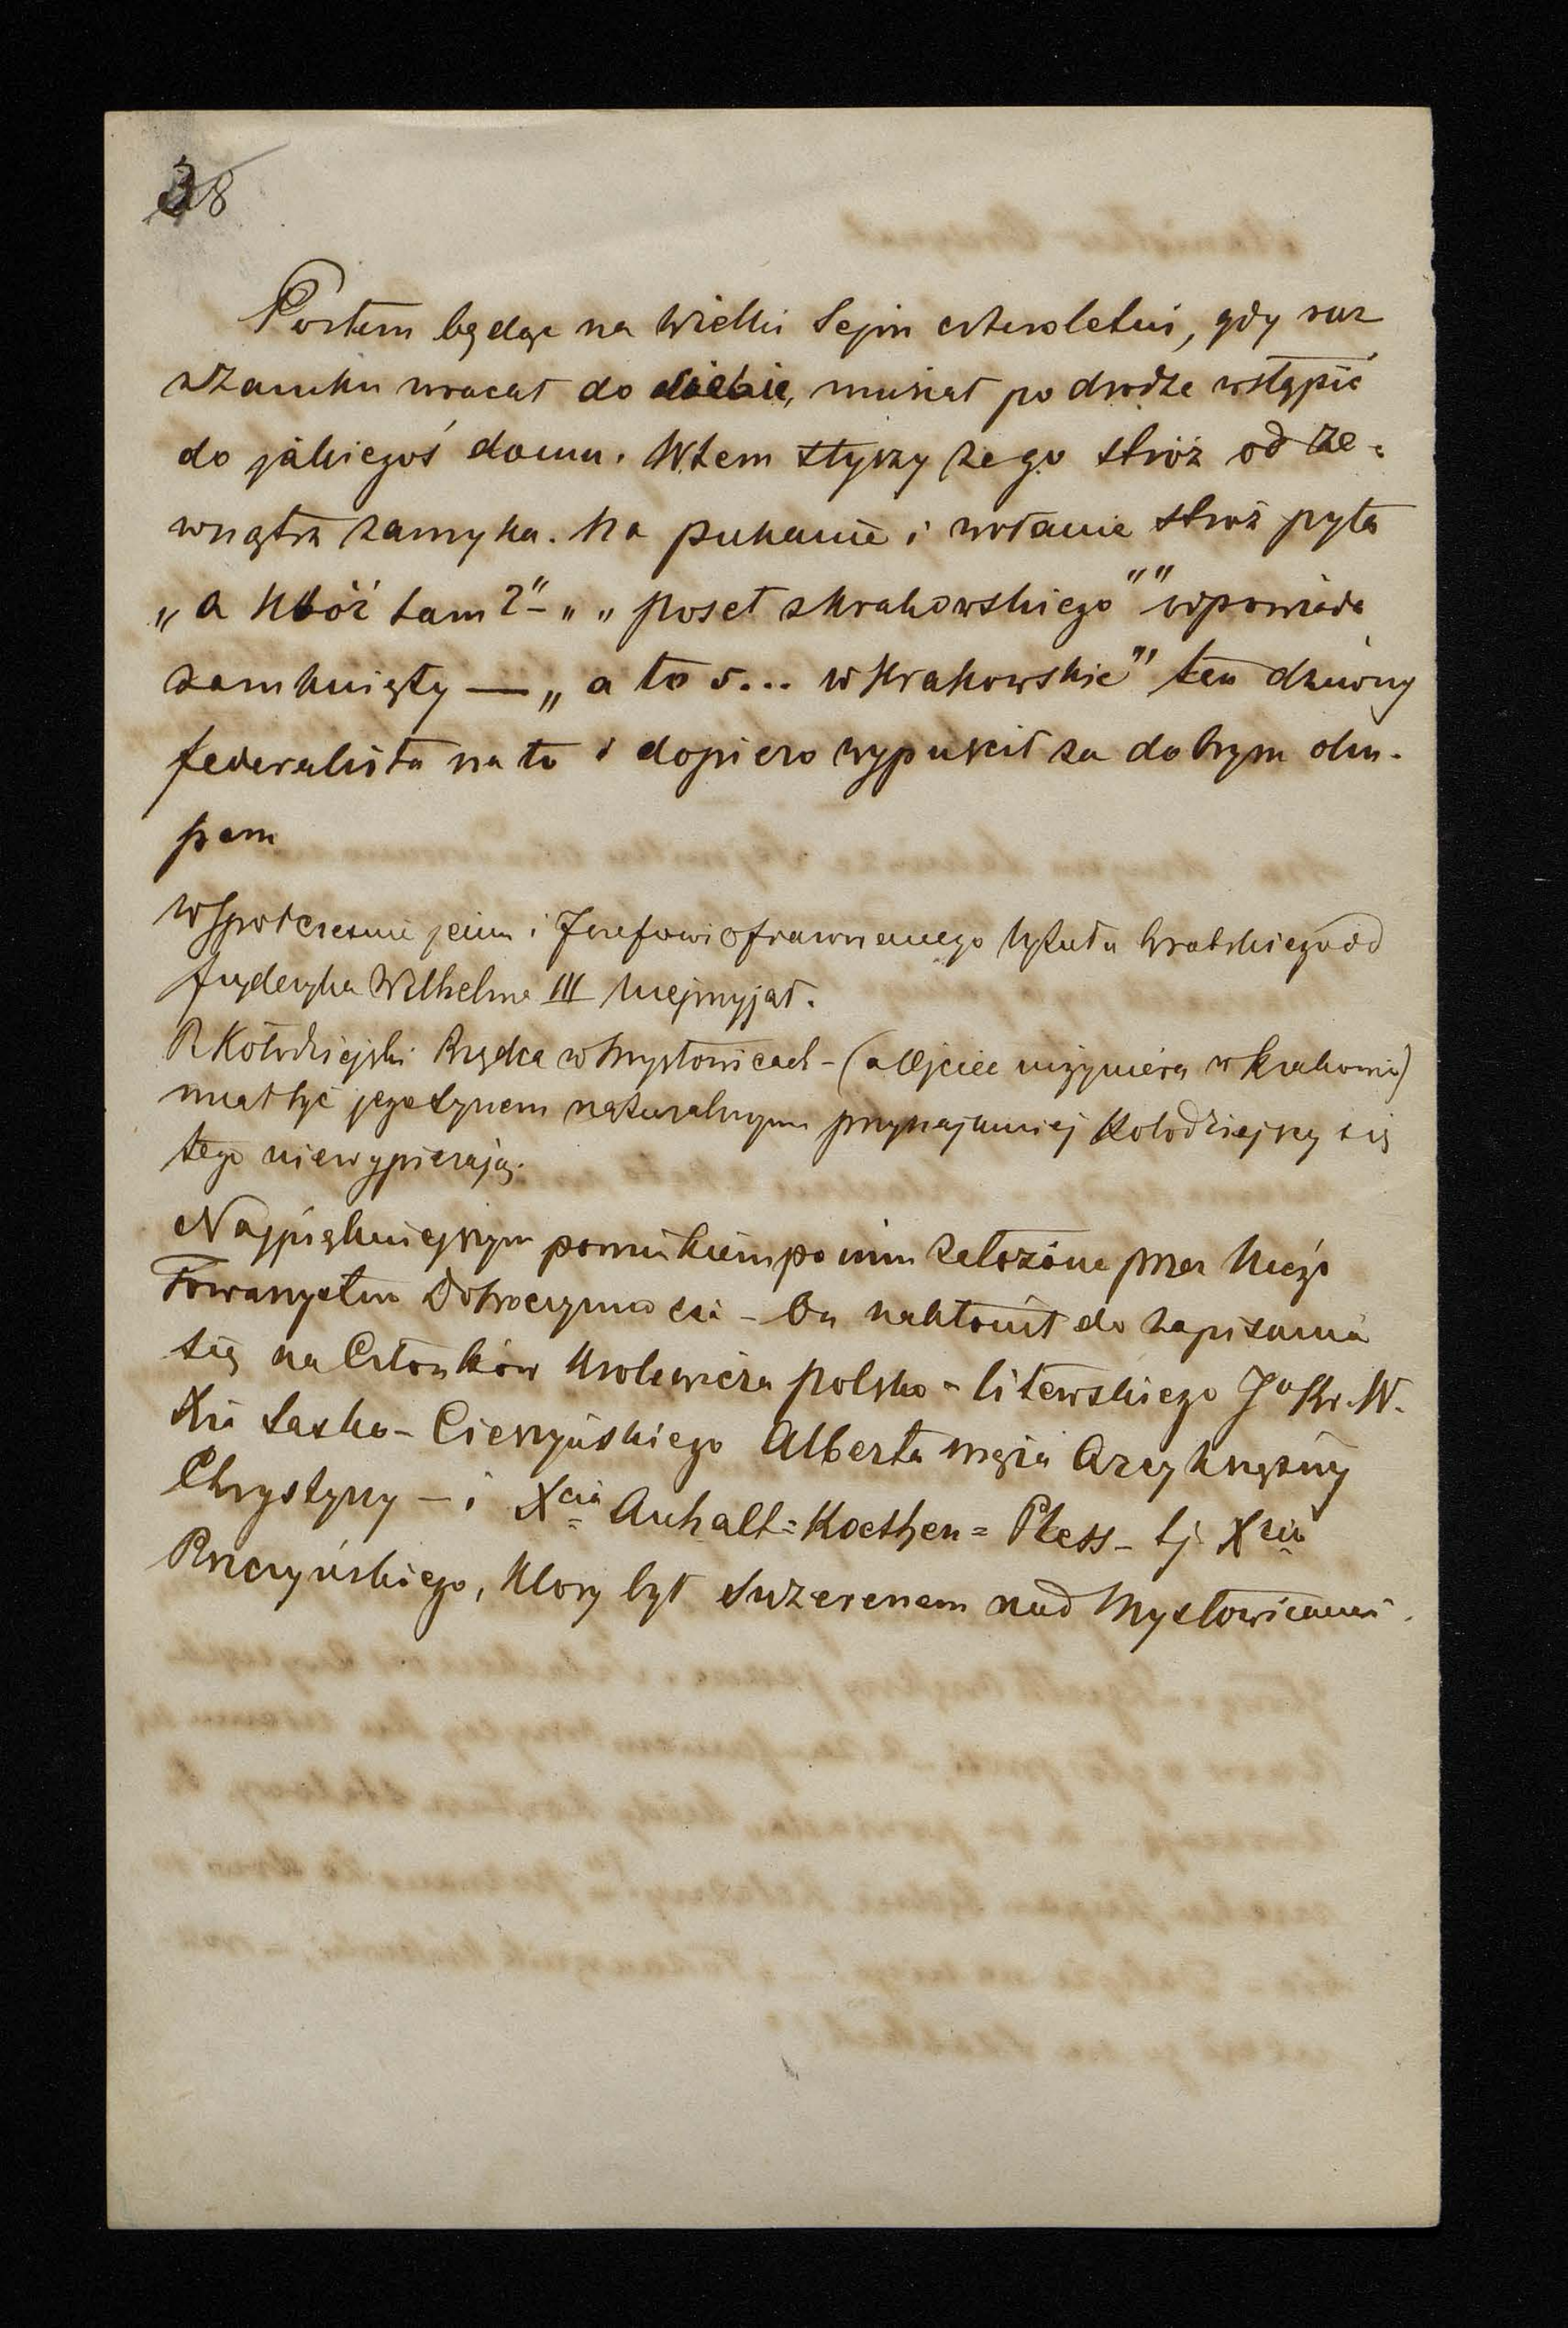 38
Posłem będąc na Wielki Sejm czteroletni, gdy raz
z Zamku wracał do siebie, musiał po drodze wstąpić
do jakiegoś domu. Wtem słyszy że go stróż od ze=
wnątrz zamyka. Na pukanie i wołanie stróż pyta
„a któż tam?" – „„poseł z krakowskiego"" odpowiada
zamknięty — „a to s... w Krakowskie" ten dziwny
federalista na to i dopiero wypuścił za dobrym oku-
pem
Współcześnie jemu i Józefowi ofiarowanego tytułu hrabskiego od
Fryderyka Wilhelma III nieprzyjął.
P. Kołodziejski Rządca w Mysłowicach – (a Ojciec inżyniera w Krakowie)
miał być jego synem naturalnym przynajmniej Kołodziejscy się
tego niewypierają.
Najpiękniejszym pomnikiem po nim założone przez Niego
Towarzystwo Dobroczynności – On nakłonił do zapisania
się na Członków Królewicza polsko = litewskiego J⁰ Kr. W.
Xia Sasko – Cieszyńskiego Alberta męża Arcyksiężny
Chrystyny – i Xcia Anhalt = Koethen = Pless – tj Xcia
Pszczyńskiego, który był Suzerenem nad Mysłowicami.